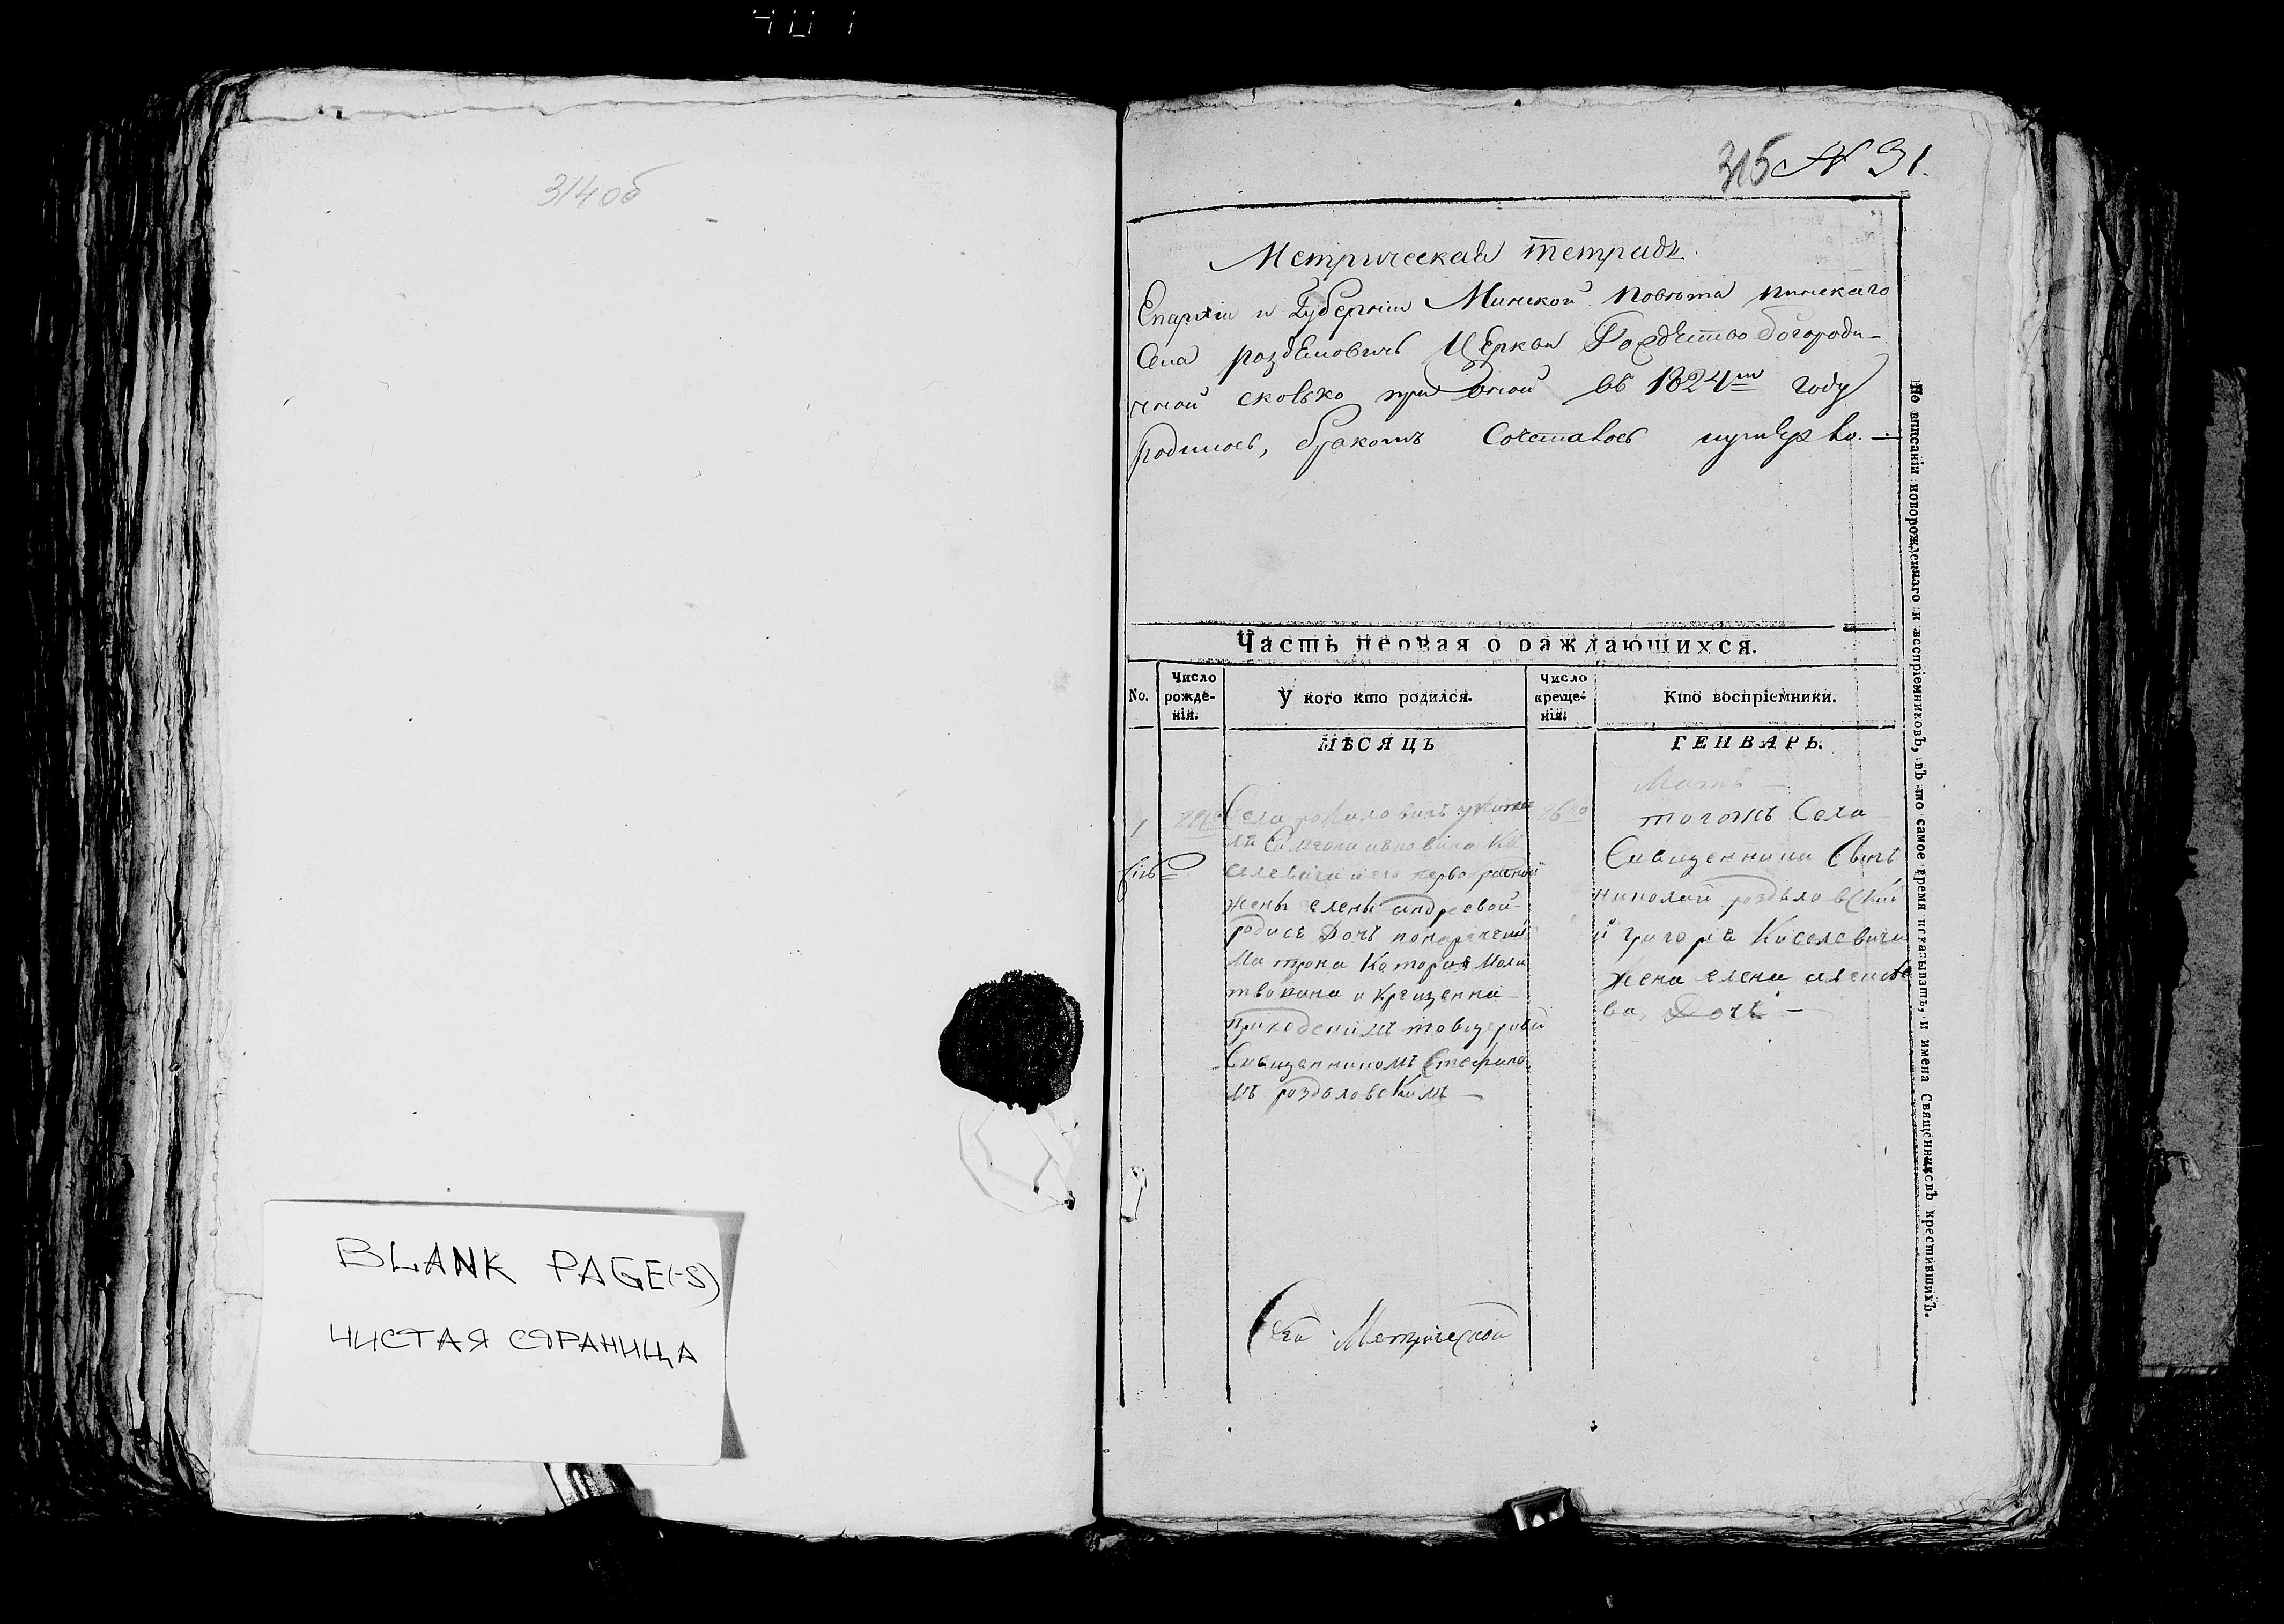 314об
BLANK PAGE(-S)
ЧИСТАЯ СТРАНИЦА
315 № 31.
Метрическая тетрадь.
Епархіи и Губерніи Минской повѣта пинскаго
Села Церкви Рождество богороди-
чной сколько при оной въ 1824м году
родилось, бракомъ Сочеталось
Часть первая о раждающихся.
No.
Число рожде-нія.
У кого кто родился.
Число креще-нія.
Кто воспріемники.
МѢСЯЦЪ
ГЕНВАРЬ.
1
Села
ля Симеона Ки
селевича и его перво
жены елены андреевой
родись Дочъ
Матрона Которая Моли
твована и Крещенна
Священникомъ Стефано
мъ роздяловскимъ
26го
тогожъ Села
Священника Сынъ
николай роздяловский
и григорія Киселевича
жена елена
ва, Дочъ
Сія Метрическая
По вписаніи новорожденнаго и воспріемниковъ, въ то самое время показывать, и имена Священниковъ крестившихъ.